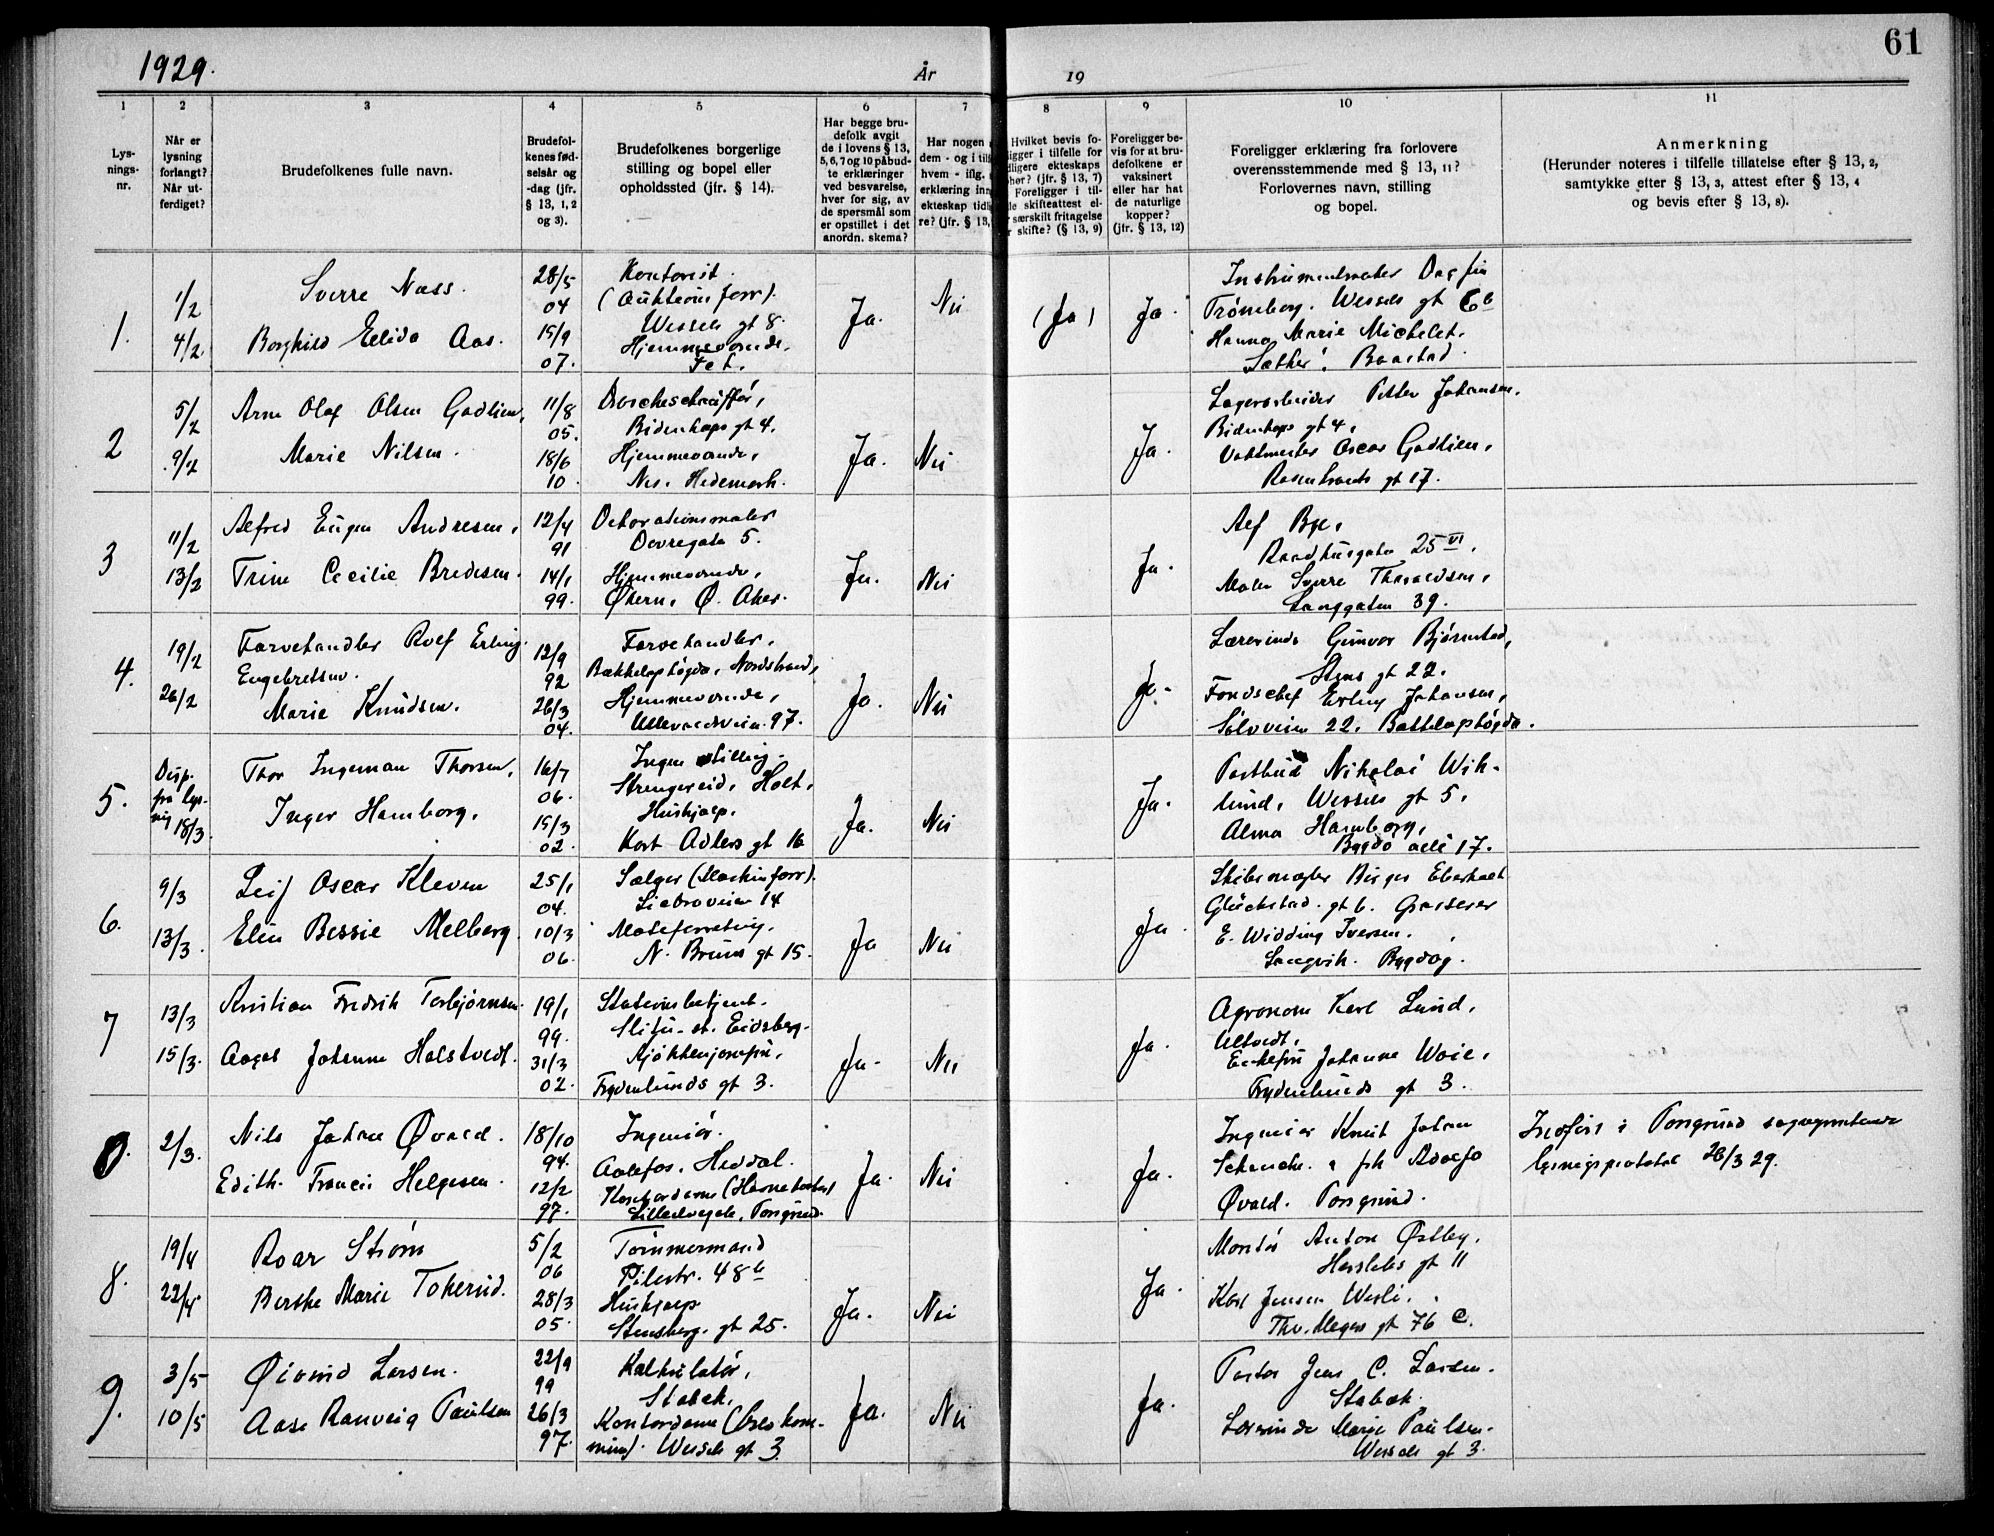 61
1929.
År
19
1
2
3
4
5
6
7
8
9
10
11
Lys-
nings-
nr.
Når er
lysning
forlangt?
Når ut-
ferdiget?
Brudefolkenes fulle navn.
Brudefol-
kenes fød-
selsår og
-dag (jfr.
§ 13, 1, 2
og 3).
Brudefolkenes borgerlige
stilling og bopel eller
opholdssted (jfr. § 14).
Har begge bru-
defolk avgit
de i lovens § 13,
5, 6, 7 og 10 påbud-
te erklæringer
ved besvarelse,
hver for sig, av
de spørsmål som
er opstillet i det
anordn. skema?
Har nogen
dem - og i til
hvem - iflg.
erklæring inn
ekteskap tidl
re? (jfr. § 13,
Hvilket bevis fo-
ligger i tilfelle for
dligere ekteskaps
hør? (jfr. § 13, 7)
Foreligger i til-
le skifteattest el-
særskilt fritagelse
r skifte? (§ 13, 9)
Foreligger be-
vis for at bru-
defolkene er
vaksinert
eller har hat
de naturlige
kopper?
(jfr. § 13, 12)
Foreligger erklæring fra forlovere
overensstemmende med § 13, 11?
Forlovernes navn, stilling
og bopel.
Anmerkning
(Herunder noteres i tilfelle tillatelse efter § 13, 2,
samtykke efter § 13, 3, attest efter § 13, 4
og bevis efter § 13, 8).
1.
1/2
4/2.
Sverre Næss.
Borghild Elida Aas.
28/5
04
15/9
07.
Kontorist.
(Auktionsforr).
Wessels gt 8.
Hjemmeværende.
Fet.
Ja.
Nei
(Ja)
Ja.
Instrumentmaker Dagfin
Trømborg. Wessels gt 6b
Hanna Marie Michelet.
Sæther. Baastad.
2
5/2
9/2
Arne Olaf Olsen Gadlien,
Marie Nilsen.
11/8
05.
18/6
10.
Droschechauffør,
Bidenkaps gt 4.
Hjemmeværende,
Nes. Hedemark.
Ja.
Nei
Ja.
Lagerarbeider Petter Johansen.
Bidenkaps gt 4,
Vaktmester Oscar Gadlien,
Rosenkrants gt 17.
3
11/2
13/2
Alfred Eugen Andresen,
Trine Cecilie Bredesen.
12/4
91
14/1
99.
Dekorationsmaler
Dovregata 5.
Hjemmeværende,
Økern, Ø. Aker.
Ja.
Nei
Ja.
Alf Bye,
Raadhusgaten 25 VI.
Maler Sverre Thoraldsen,
Langgaten 39.
4.
19/2
26/2
Farvehandler Rolf Erling
Engebretsen.
Marie Knudsen.
12/9
92
26/3
04.
Farvehandler,
Bækkelagshøgda, Nordstrand,
Hjemmeværende,
Ullevaalsveien 97.
Ja.
Nei
Ja.
Lærerinde Gunvor Bjørnstad,
Stens gt 22.
Fondschef Erling Johansen,
Solveien 22. Bækkelagshøgda.
5.
Disp.
fra lys-
ning 18/3.
Thor Ingeman Thorsen,
Inger Hamborg.
16/7
06.
15/3
02.
Ingen stilling.
Strengereid, Holt,
Hushjælp.
Kort Adlers gt 16
Ja.
Nei
Ja.
Postbud Nikolai Wik-
lund, Wessels gt 5,
Alma Hamborg,
Bygdø allé 17.
6.
9/3
13/3.
Leif Oscar Kleven
Elin Bessie Melberg
25/1
04.
10/3
06.
Sælger (Maskinforr).
Liabroveien 14
Moteforretning.
N. Bruns gt 15.
Ja
Nei
Ja.
Skibsmægler Birger Eberhardt
Glückstad. gt 6. Grosserer
E. Widding Iversen.
Langvik. Bygdøy.
7
13/3
15/3.
Kristian Fredrik Torbjørnsen.
Aagot Johanne Holstvedt.
19/1
99.
31/3
02.
Stationsbetjent.
Slitu st. Eidsberg.
Kjøkkenjomfru,
Frydenlunds gt 3.
Ja.
Nei
Ja.
Agronom Karl Lund,
Enkefru Johanne Woie,
Frydenlunds gt 3.
0.
2/3.
Nils Johan Øvald.
Edith Francis Helgesen.
18/10
94.
12/2
97.
Ingeniør.
Aalefos. Heddal.
Kontordame (Havnekontor)
Lillelvgate, Porsgrund.
Ja.
Nei
Ja.
Ingeniør Knut Johan
Schanche. & frk Adolfa
Øvald. Porsgrund.
Indført i Porsgrund sogneprestens
lysningsprotokol 26/3 29.
8.
19/4
22/4
Roar Strøm
Berthe Marie Tokerud.
5/2
06
28/3
05.
Tømmermand
Pilestr. 48 b
Hushjælp
Stensberg. gt 25.
Ja.
Nei
Ja.
Montør Anton Østby.
Herslebs gt 11
Karl Jensen Werli.
Thv. Meyers gt 76 C.
9.
3/5
10/5
Øivind Larsen.
Aase Ranveig Paulsen
22/9
99
26/3
97.
Kalkulatør,
Stabæk.
Kontordame (Oslo kom-
mune). Wessels gt 3.
Ja.
Nei
Ja.
Pastor Jens C. Larsen.
Stabæk.
Lærerinde Marie Paulsen.
Wessels gt 3.